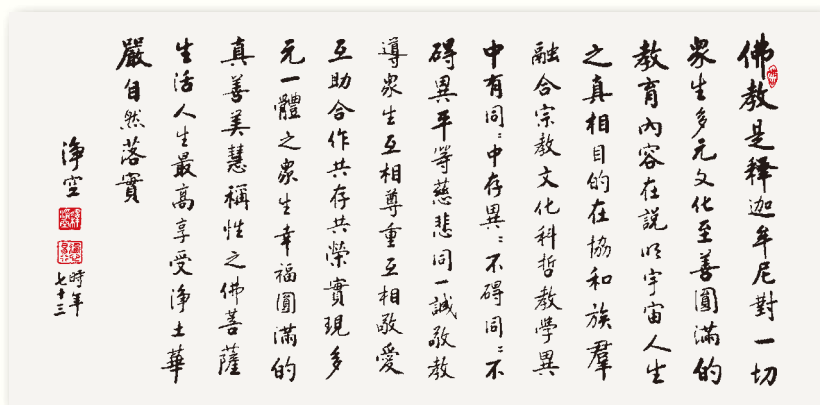 佛教是釋迦牟尼對一切
眾生多元文化至善圓滿的
教育內容在說明宇宙人生
之真相目的在協和族羣
融合宗教文化科哲教學異
中有同:中存異:不礙同:不
碍異平等慈悲同一誠敬教
導眾生互相尊重互相敬愛
互助合作共存共榮實現多
元一體之眾生幸福圓滿的
真善美慧稱性之佛菩薩
生活人生最高享受淨土華
嚴自然落實
淨空
時年
七十三